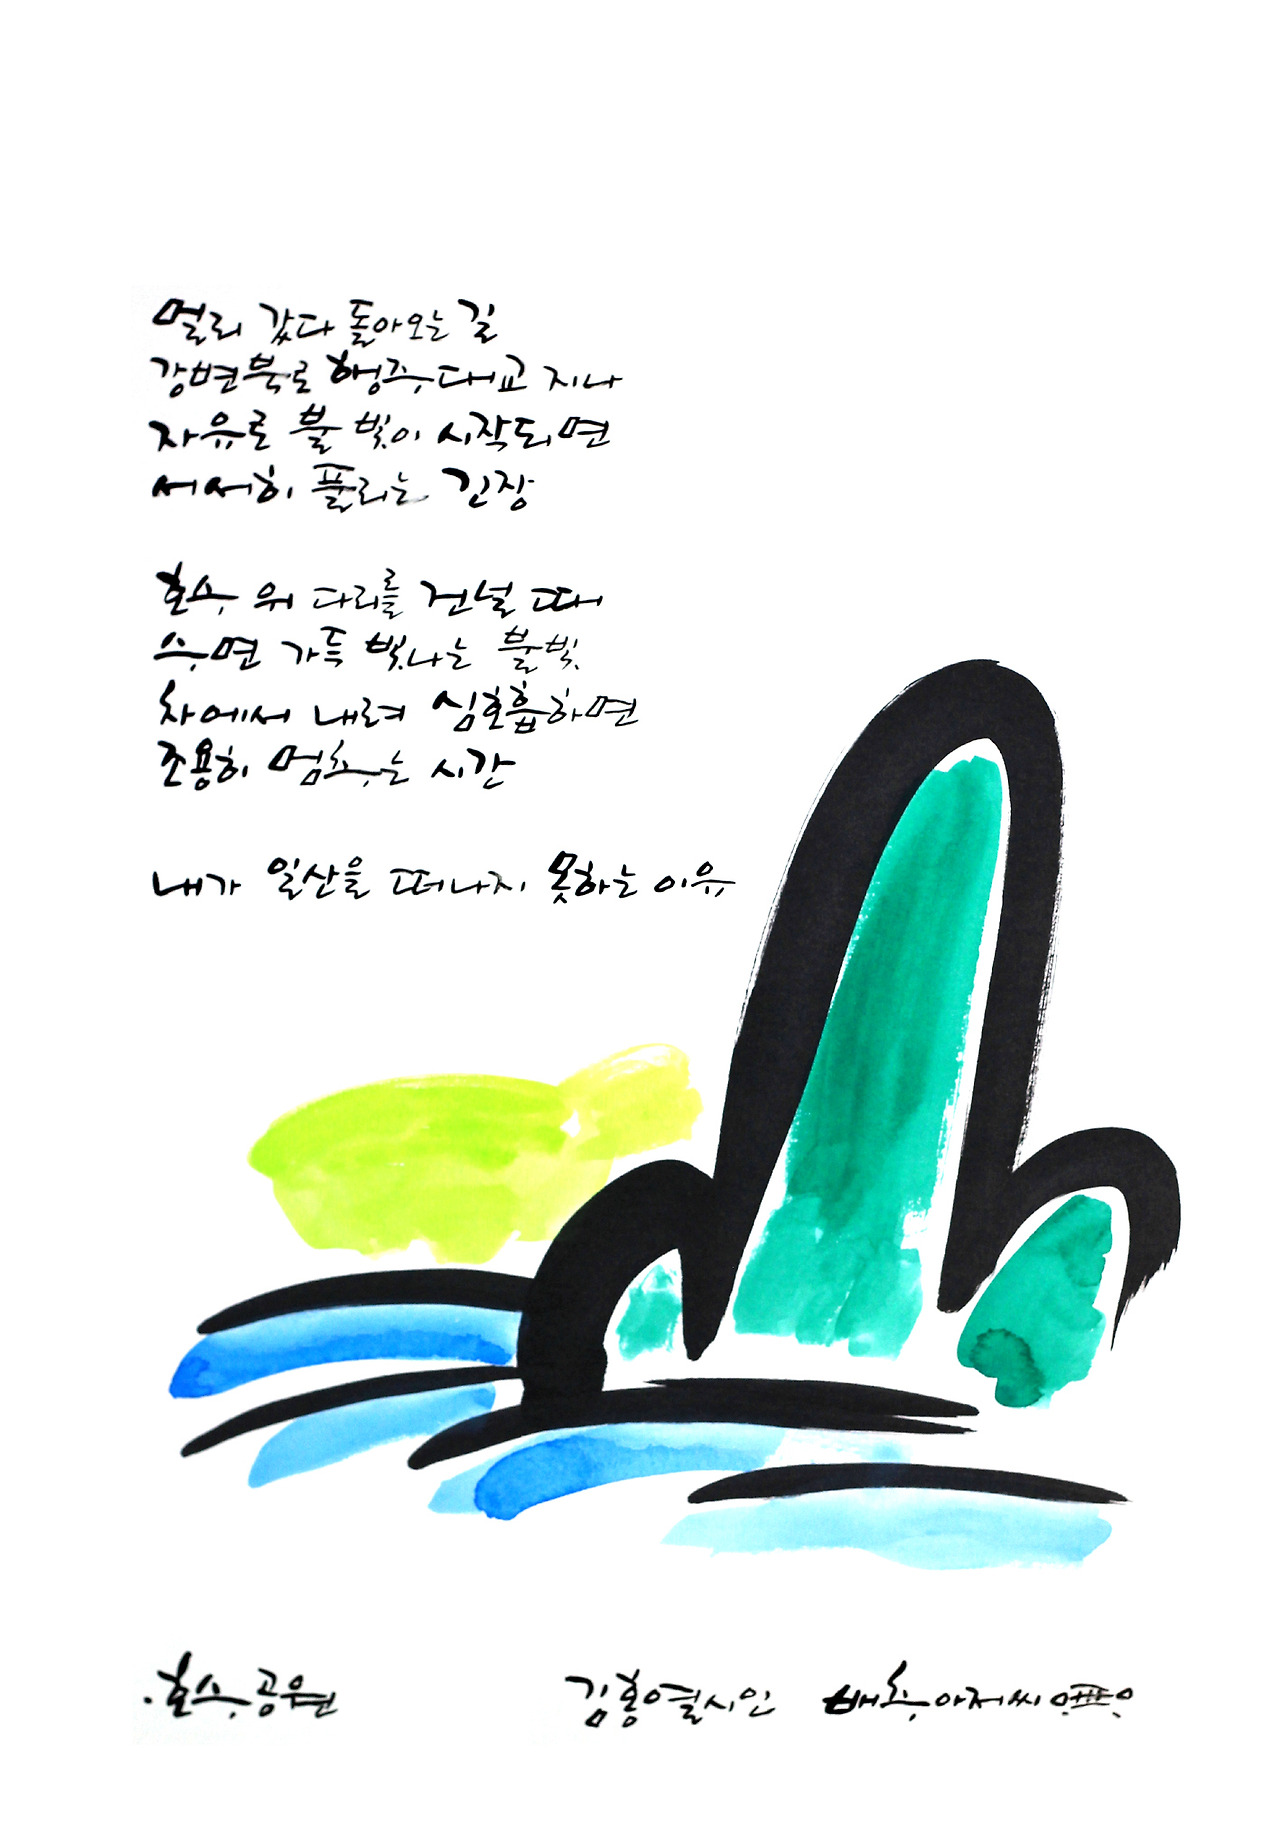 멀리 갔다 돌아오는 길
강변북로 행주대교 지나
자유로 불빛이 시작되면
서서히 풀리는 긴장
호수 위 다리를 건널 때
수면 가득 빛나는 불빛
차에서 내려 심호흡하면
조용히 멈추는 시간
내가 일산을 떠나지 못하는 이유
·호수공원
김홍열시인 배추아저씨